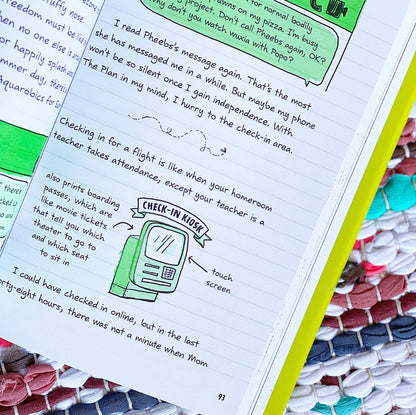 nuffy nose
freedom must be li
when no one else is o
or happily splash
summer day, there's
Aquarobics for S
there's
closed
for normal bodily
prawns on my pizza. I'm busy
project. Don't call Pheebs again, OK?
Why don't you watch wuxia with Popo?
I read Pheebs's message again. That's the most
she has messaged me in a while. But maybe my phone
won't be so silent once I gain independence. With
The Plan in my mind, I hurry to the check-in area.
Checking in for a flight is like when your homeroom
teacher takes attendance, except your teacher is a
also prints boarding
passes, which are
like movie tickets
that tell you which
theater to go to
and which seat
to sit in
CHECK-IN KIOSK
touch
screen
I could have checked in online, but in the last
forty-eight hours, there was not a minute when Mom
93